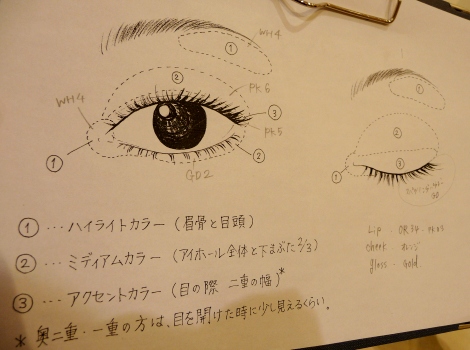 WH4
①
②
PK6
WH4
③
PK5
①
②
GD2
②
③
①
Lip . OR34 .
cheek .
gloss . Gold
① … ハイライトカラー (眉骨と目頭)
② … ミディアムカラー (アイホール全体と下まぶた2/3)
③ … アクセントカラー (目の際 二重の幅)*
* 奥二重・一重の方は、目を開けた時に少し見えるくらい。